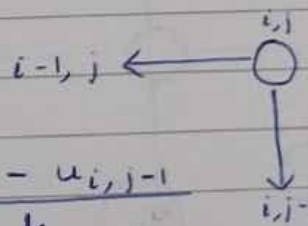 i,j
i-1, j
- u i, j-1
i,j-